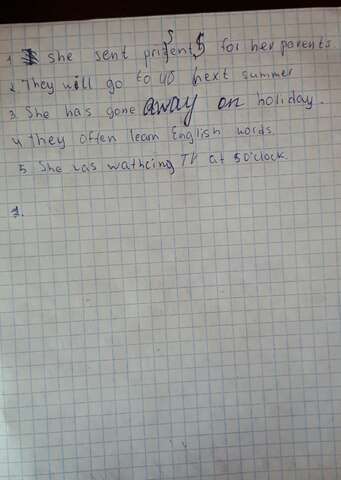 1. she sent prisents for her parents
2. They will go to US next summer
3. She has gone away on holiday.
4 they often learn English words.
5. She was wathcing TV at 5 o'clock.
1.